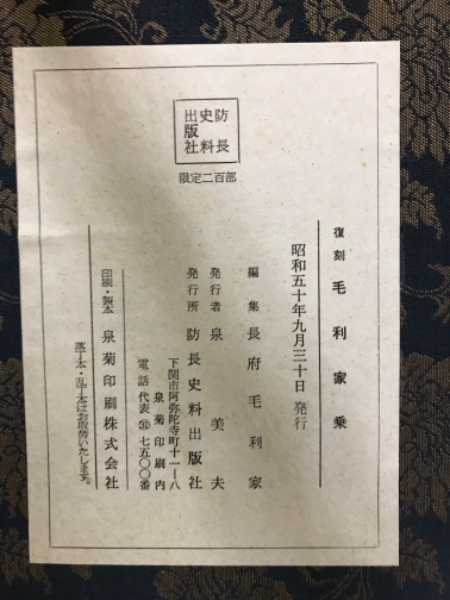 防長
史料
出版社
限定二百部
復刻 毛利家乗
昭和五十年九月三十日 発行
編集 長府毛利家
発行者 泉 美夫
発行所 防長史料出版社
下関市阿弥陀寺町十一―八
泉菊印刷内
電話 代表㉛七五〇〇番
印刷・製本 泉菊印刷株式会社
落丁本・乱丁本はお取替いたします。